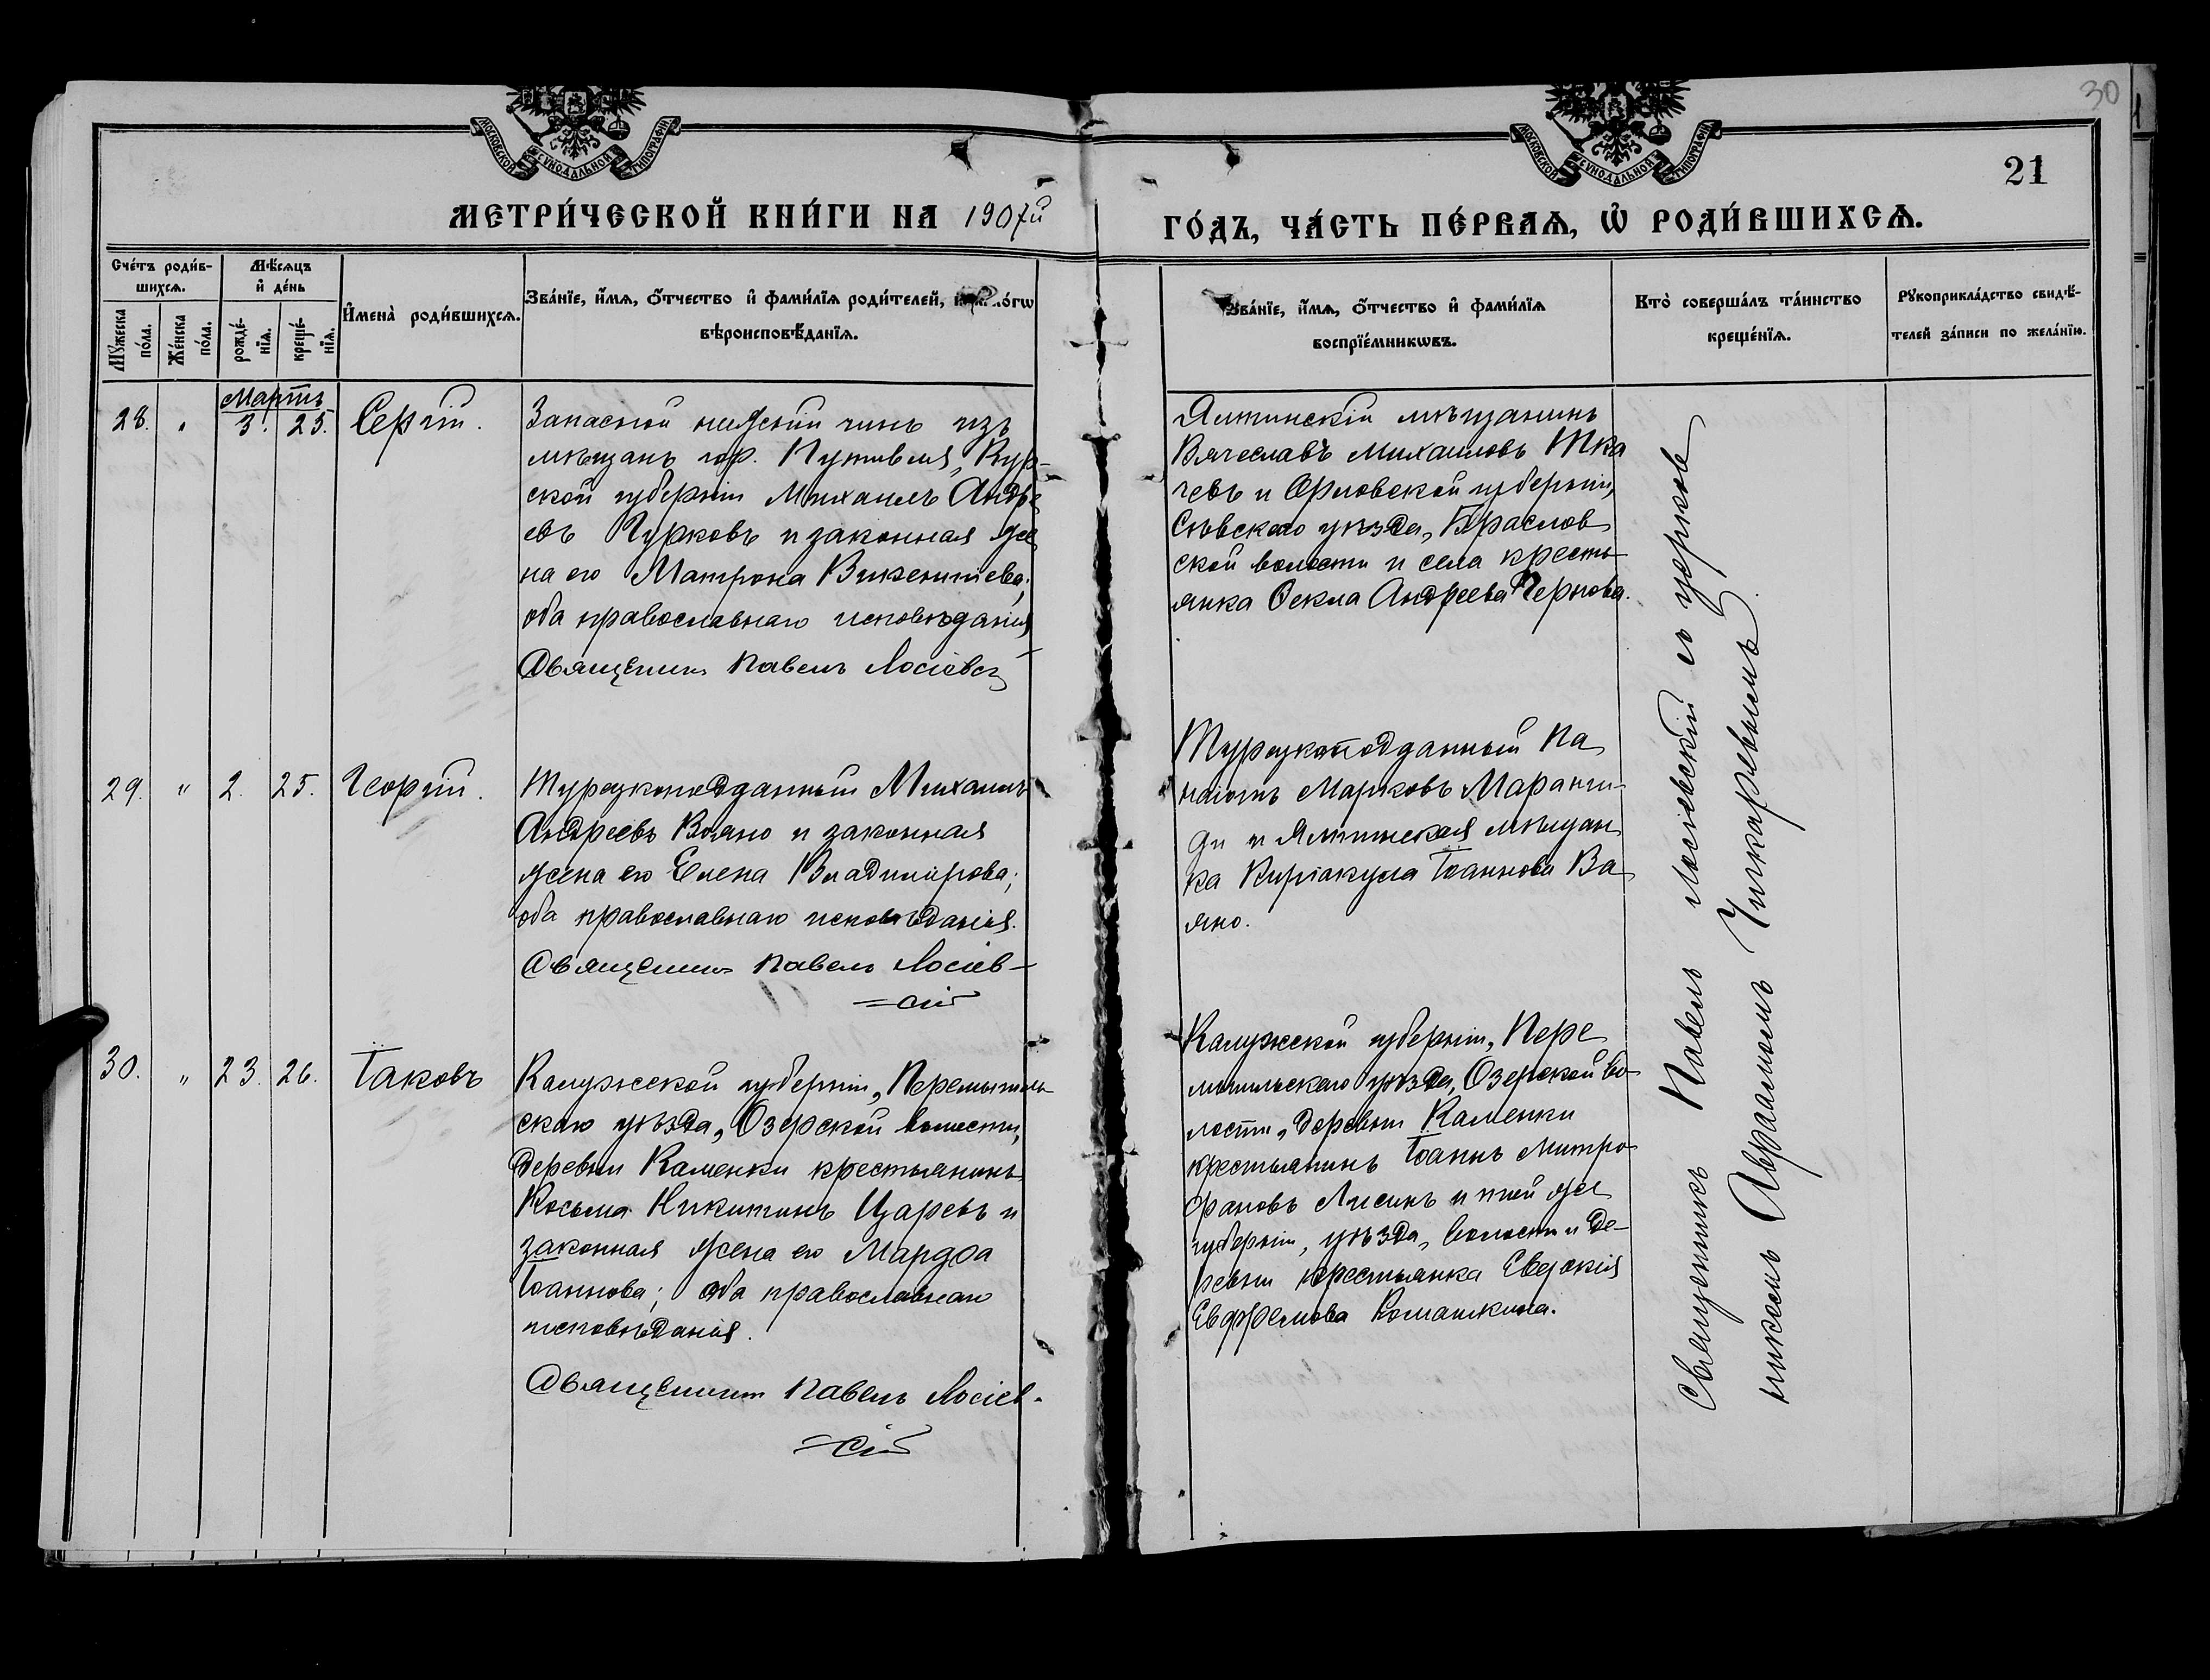 30
21
МОСКОВСКОЙ СѴНОДАЛЬНОЙ ТИПОГРАФІИ
МОСКОВСКОЙ СѴНОДАЛЬНОЙ ТИПОГРАФІИ
МЕТРИ́ЧЕСКОЙ КНИ́ГИ НА 1907й
ГО́ДЪ, ЧА́СТЬ ПЕ́РВАѦ, Ѡ҆ РОДИ́ВШИХСѦ.
Сче́тъ роди́в-
шихсѧ.
Мꙋ́жеска по́ла.
Же́нска по́ла.
Мѣ́сѧцъ
и҆ де́нь
рожде́-нїѧ.
креще́-нїѧ.
И҆мена̀ роди́вшихсѧ.
Зва́нїе, и҆́мѧ, ѻ҆́тчество и҆ фами́лїѧ роди́телей,
вѣроисповѣ́данїѧ.
Зва́нїе, и҆́мѧ, ѻ҆́тчество и҆ фами́лїѧ
воспрїе́мникѡвъ.
Кто̀ соверша́лъ та́инство
креще́нїѧ.
Рꙋкоприкла́дство свидѣ́-
телей за́писи по жела́нїю.
Мартъ
28. " 3. 25. Сергій.
Запасной нижній чинъ изъ
мѣщанъ гор. Путивля, Кур-
ской губерніи Михаилъ Андре
евъ Чурковъ и законная же
на его Матрона Викентіева;
оба православнаго исповѣданія
Священникъ Павелъ Лосіевск
Ялтинскій мѣщанинъ
Вячеславъ Михаиловъ Тка
чевъ и Орловской губерніи,
Сѣвскаго уѣзда, Брасов
ской волости и села кресть
янка Ѳекла Андреева Чернова.
29. " 2. 25. Георгій.
Турецкоподданный Михаилъ
Андреевъ Вояно и законная
жена его Елена Владимірова;
оба православнаго исповѣданія.
Священникъ Павелъ Лосіев-
=скій
Турецкоподданный Па
наіотъ Марковъ Маранги-
ди и Ялтинская мѣщан
ка Киріакула Іоаннова Ва
яно.
30. " 23. 26. Іаковъ
Калужской губерніи, Перемышль
скаго уѣзда, Озерской волости,
деревни Каменки крестьянинъ
Косьма Никитинъ Царевъ и
законная жена его Марѳа
Іоаннова; оба православнаго
исповѣданія.
Священникъ Павелъ Лосіев-
=скій
Калужской губерніи, Пере
мышльскаго уѣзда, Озерской во-
лости, деревни Каменки
крестьянинъ Іоаннъ Митро
фановъ Лисинъ и той же
губерніи, уѣзда, волости и де-
ревни крестьянка Евдокія
Евфремова Ромашкина.
Священникъ Павелъ Лосіевскій съ церков
никомъ Авраамомъ Чикаревымъ.